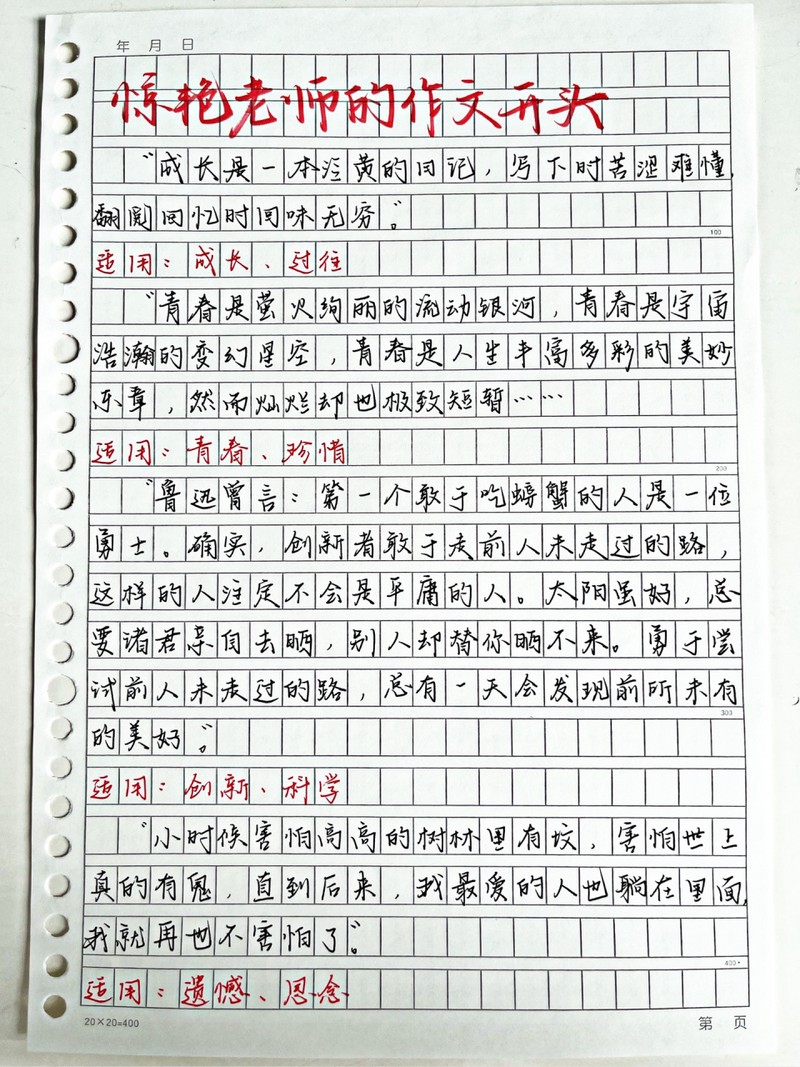 年 月 日
惊艳老师的作文开头
“成长是一本泛黄的日记，写下时苦涩难懂，
翻阅回忆时回味无穷”。
100
适用：成长、过往
“青春是萤火绚丽的流动银河，青春是宇宙
浩瀚的变幻星空，青春是人生丰富多彩的美妙
乐章，然而灿烂却也极致短暂……
适用：青春、珍惜
200
“鲁迅曾言：第一个敢于吃螃蟹的人是一位
勇士。确实，创新者敢于走前人未走过的路，
这样的人注定不会是平庸的人。太阳虽好，总
要诸君亲自去晒，别人却替你晒不来。勇于尝
试前人未走过的路，总有一天会发现前所未有
300
的美好”。
适用：创新、科学
“小时候害怕高高的树林里有坟，害怕世上
真的有鬼，直到后来，我最爱的人也躺在里面，
我就再也不害怕了”。
400
适用：遗憾、思念
20×20=400
第 页